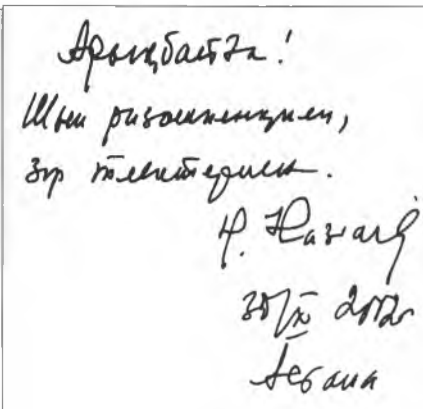 Арықбастға!
Шын ризашылықпен,
зор тілектермен.
Н. Назар
30/IX 2002
Астана